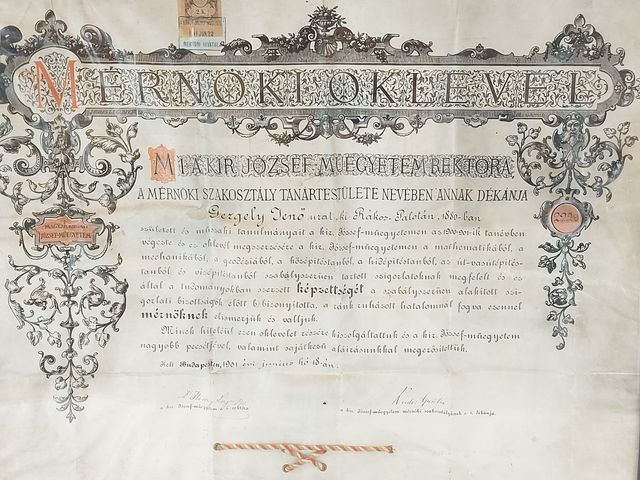 MÉRNÖKI OKLEVÉL
MI A KIR. JÓZSEF MŰEGYETEM REKTORA
A MÉRNÖKI SZAKOSZTÁLY TANÁRTESTÜLETE NEVÉBEN ANNAK DÉKÁNJA
JÓZSEF-MŰEGYETEM
Gergely Jenő urat, ki Rákos-Palotán, 1880-ban
született és műszaki tanulmányait a kir. József-műegyetemen az 1900-901-ik tanévben
végezte és ez oklevél megszerzésére a kir. József-műegyetemen a mathematikából, a
mechanikából, a geodéziából, a középítéstanból, a hídépítéstanból, az út-vasútépítés-
tanból és vízépítéstanból szabályszerűen tartott szigorlatoknak megfelelt és ez
által a tudományokban szerzett képzettségét a szabályszerűen alakított szi-
gorlati bizottságok előtt bebizonyította, a ránk ruházott hatalomnál fogva ezennel
mérnöknek elismerjük és valljuk.
Minek hiteléül ezen oklevelet részére kiszolgáltattuk és a kir. József-műegyetem
nagyobb pecsétjével, valamint sajátkezű aláírásunkkal megerősítettük.
Kelt Budapesten, 1901 évi junius hó 18-án.
a kir. József-műegyetem
a kir. József-műegyetem mérnöki szakosztályának e. i. dékánja.